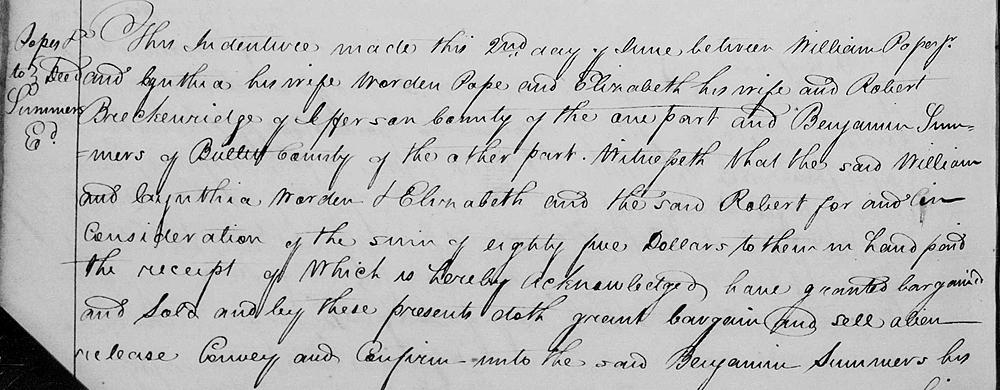 Popes &
to } Deed
Summers
Ed
This Indenture made this 2nd day of June between William Pope jr.
and Cynthia his wife Worden Pope and Elizabeth his wife and Robert
Breckenridge of Jefferson County of the one part and Benjamin Sum=
=mers of Bullitt County of the other part. Witnesseth that the said William
and Cynthia Worden & Elizabeth and the said Robert for and in
Consideration of the sum of eighty five Dollars to them in hand paid
the receipt of Which is hereby acknowledged have granted bargain'd
and Sold and by these presents doth grant bargain and sell alien
release Convey and Confirm unto the said Benjamin Summers his